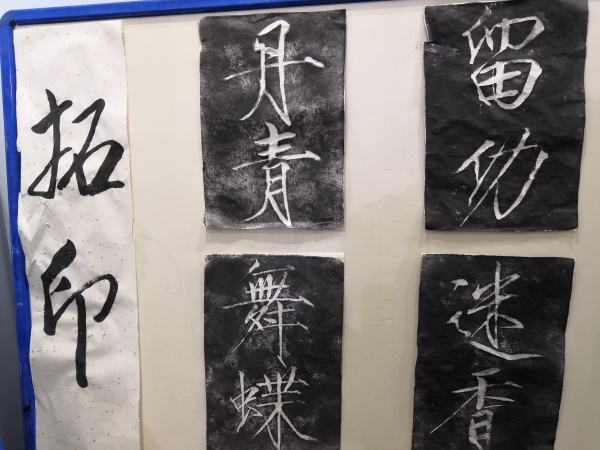 拓印
丹青
留功
舞蝶
迷香